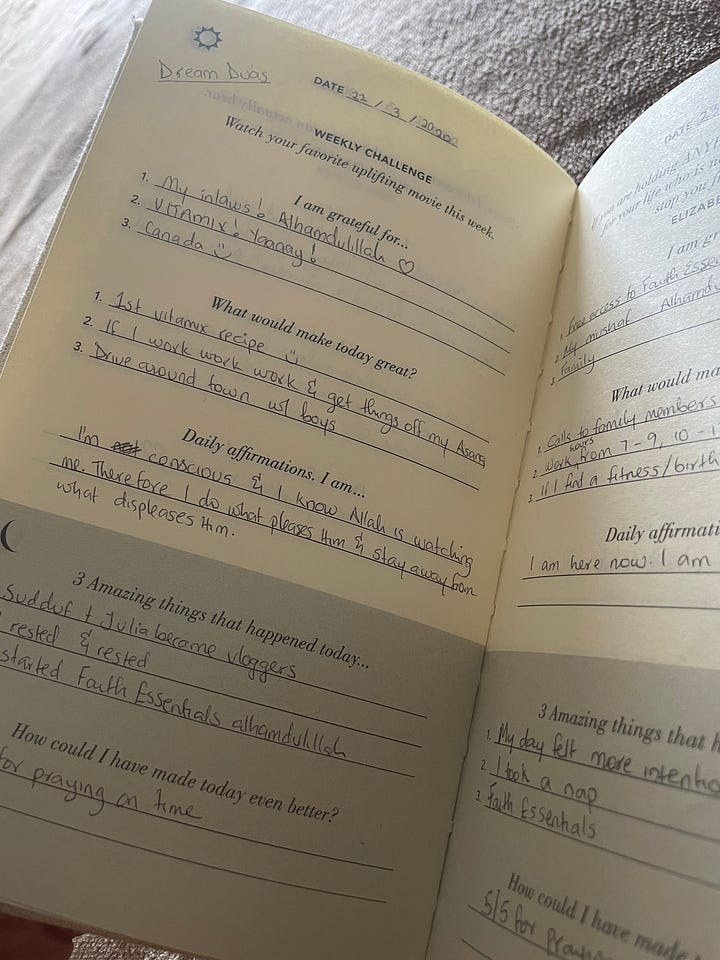 Dream Duas
DATE 22 / 3 / 2020
WEEKLY CHALLENGE
Watch your favorite uplifting movie this week.
I am grateful for...
1. My inlaws! Alhamdulillah ♡
2. VITAMIX! Yaaaay!
3. Canada
What would make today great?
1. 1st vitamix recipe
2. If I work work work & get things off my Asana
3. Drive around town w/ boys
Daily affirmations. I am...
I'm conscious & I know Allah is watching
me. Therefore I do what pleases Him & stay away from
what displeases Him.
3 Amazing things that happened today...
Sudduf + Julia became vloggers
rested & rested
started Faith Essentials alhamdulillah
How could I have made today even better?
for praying on time
DATE
if you are holding
for your life who is
stop you
ELIZAB
I am gr
1. Free access to Faith Esse
2. My mushaf. Alhamdu
3. Family
What would ma
1. Calls to family members
2. Work hours from 7-9, 10-1
3. If I find a fitness/birth
Daily affirmati
I am here now. I am
3 Amazing things that h
1. My day felt more intentio
2. I took a nap
3. Faith Essentials
How could I have made
5/5 for